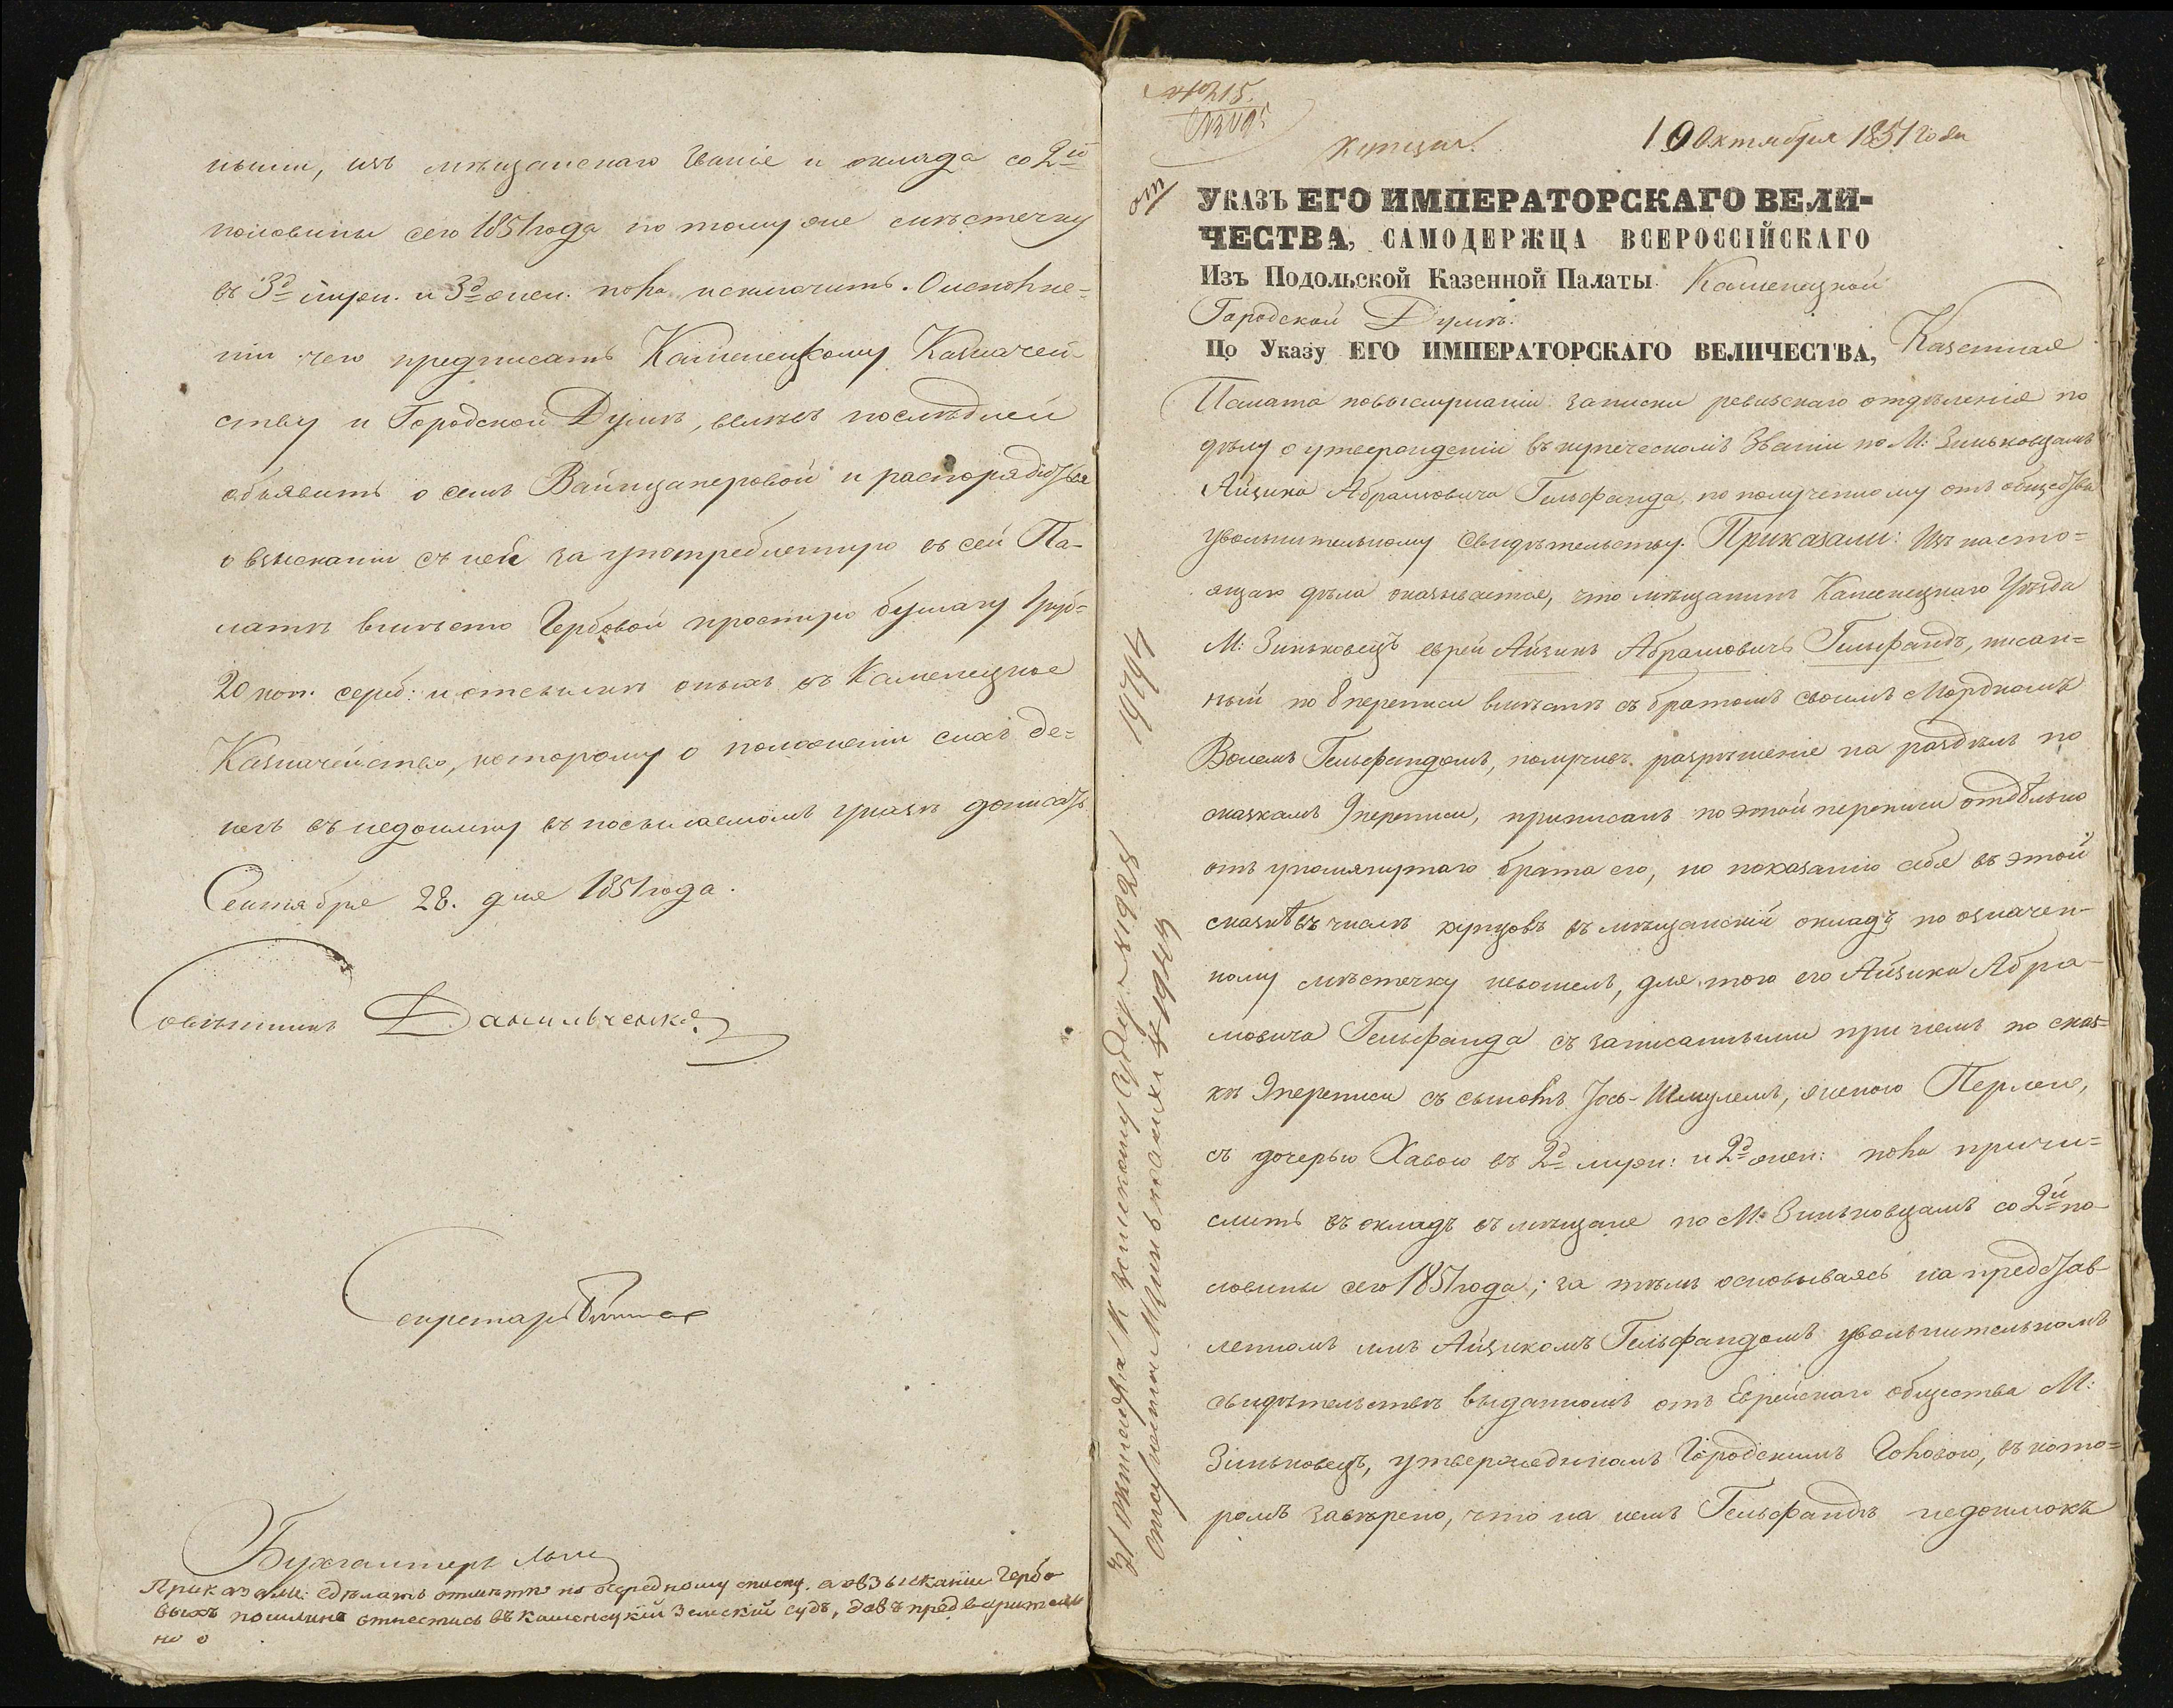 ными, изъ мѣщанскаго званіе и оклада со 2й
половины сего 1851 года по тому же мѣстечку
въ 3д муж. и 3д жен. пола исключить. О исполне-
ніи чего предписать Каменецкому Казначей-
ству и Городской Думѣ, велѣвъ послѣдней
объявить о семъ Вайнцаперовой и распорядиться
о взысканіи съ ней за употребленную въ сей Па-
латѣ вмѣсто Гербовой простую бумагу 1 руб=
20 коп. сереб: и отсылкѣ оныхъ въ Каменецкое
Казначейство, которому о положеніи сихъ де=
негъ въ недоимку въ посылаемомъ указѣ дописать
Сентября 28. дня 1851 года.
Совѣтникъ Данильченко
Секретарь
Бухгалтеръ
Приказали: сдѣлать отмѣтку по очередному списку, а о взысканіи Гербо
выхъ пошлинъ отнестись въ Каменецкій Земскій судъ, давъ предварительн
но о
10 Октября 1851 Года
УКАЗЪ ЕГО ИМПЕРАТОРСКАГО ВЕЛИ-
ЧЕСТВА, САМОДЕРЖЦА ВСЕРОССІЙСКАГО
Изъ Подольской Казенной Палаты Каменецкой
Городской Думѣ.
По Указу ЕГО ИМПЕРАТОРСКАГО ВЕЛИЧЕСТВА, Казенная
Палата по выслушаніи записки ревизскаго отдѣленія по
дѣлу о утвержденіи въ купеческомъ званіи по М: Зиньковцамъ
Айзика Абрамовича Гельфанда, по полученному отъ общества
увольнительному свидѣтельству. Приказали: Изъ насто=
ящаго дѣла оказывается, что мѣщанинъ Каменецкаго Уѣзда
М: Зиньковецъ еврей Айзикъ Абрамовичъ Гельфандъ, писан=
ный по 8 переписи вмѣстѣ съ братомъ своимъ Мордкомъ
Волемъ Гельфандомъ, получивъ разрѣшеніе на раздѣлъ по
сказкамъ 9 переписи, приписанъ по этой переписи отдѣльно
отъ упомянутаго брата его, но показанію себя въ этой
сказкѣ въ числѣ купцовъ въ мѣщанскій окладъ по означен-
ному мѣстечку невошелъ, для того его Айзика Абра-
мовича Гельфанда съ записанными при немъ по сказ=
кѣ 9 переписи съ сыномъ Іось-Шмулемъ, женою Перлею,
съ дочерью Хавою въ 2д муж: и 2д жен: пола причи=
слить въ окладъ въ мѣщане по М: Зиньковцамъ со 2й по-
ловины сего 1851 года; за тѣмъ основываясь на представ-
ленномъ имъ Айзикомъ Гельфандомъ увольнительномъ
свидѣтельствѣ выданномъ отъ Еврейскаго общества М:
Зиньковецъ, утвержденномъ Городскимъ Головою, въ кото=
ромъ завѣрено, что на немъ Гельфандѣ недоимокъ